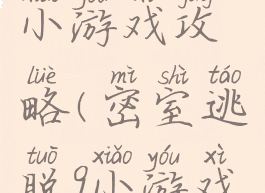 小游戏攻
lüè mì shì táo
略(密室逃
tuō xiǎo yóu xì
脱9小游戏